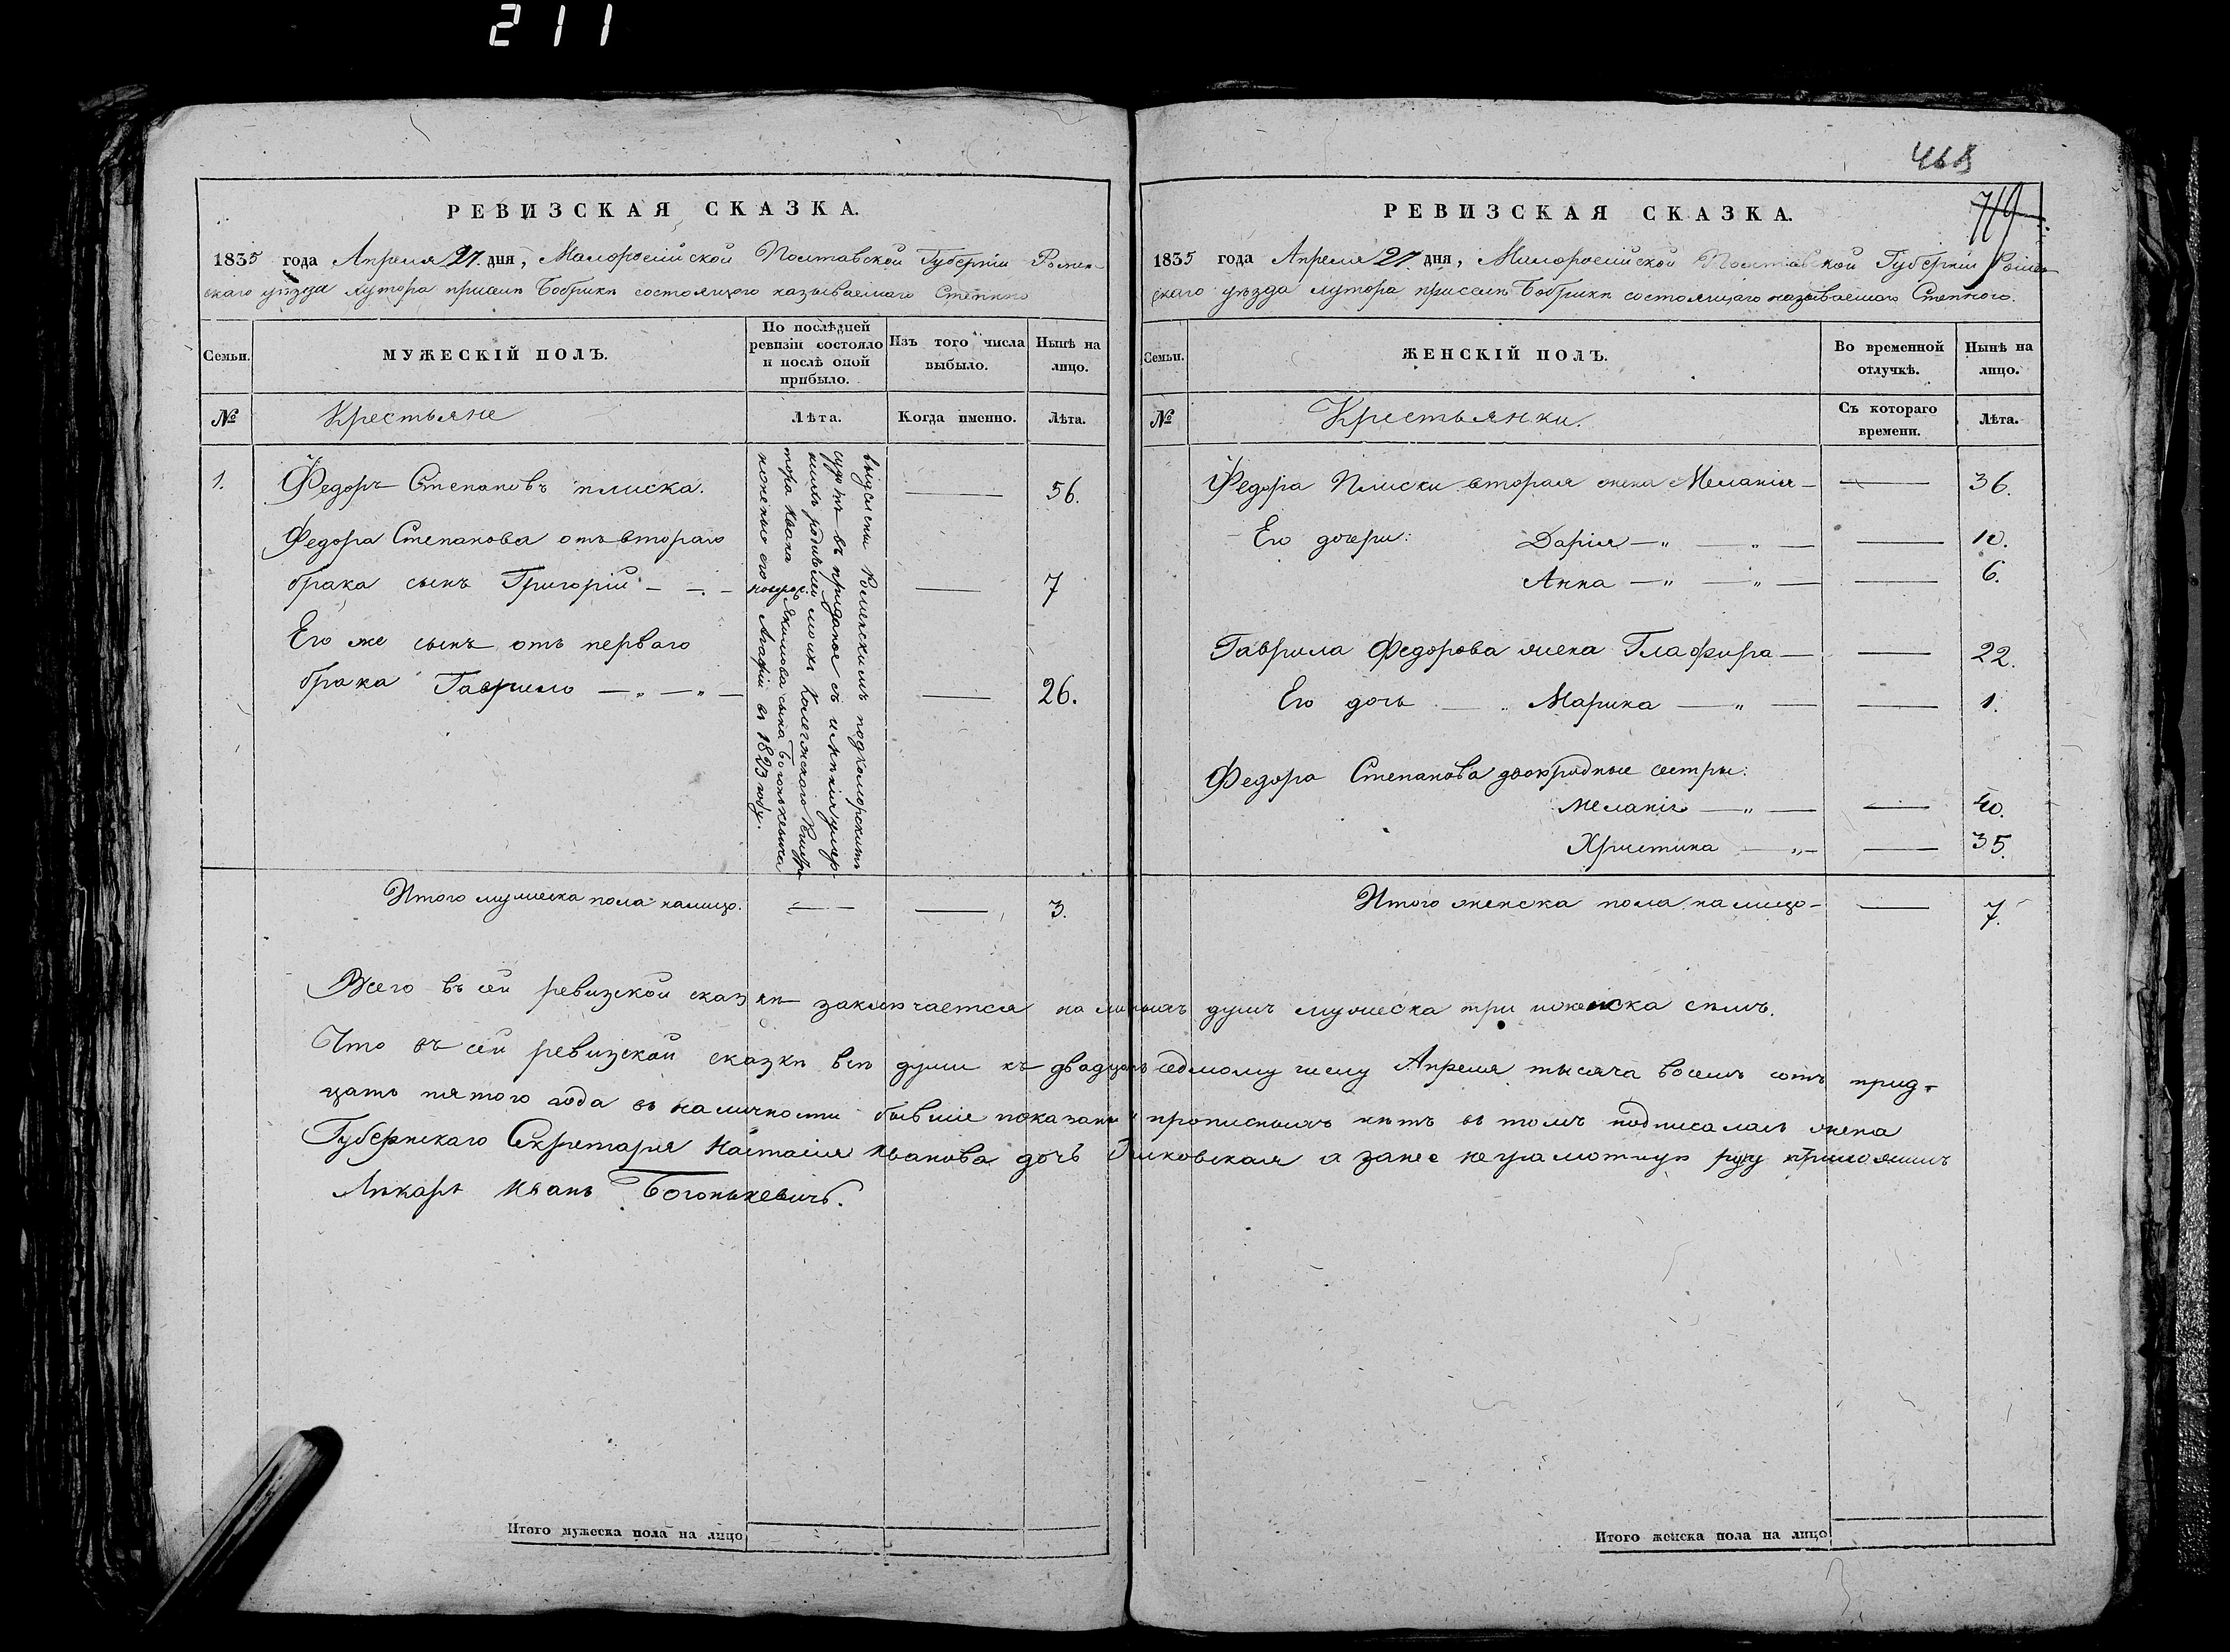 211
РЕВИЗСКАЯ СКАЗКА.
1835 года Апреля 27. дня, Малоросійской Полтавской Губерніи Ромен-
скаго уѣзда хутора при селѣ Бобрикѣ состоящого называемаго Степного
Семьи. МУЖЕСКІЙ ПОЛЪ. По послѣдней ревизіи состояло и послѣ оной прибыло. Изъ того числа выбыло. Нынѣ на лицо.
№ Крестьяне Лѣта. Когда именно. Лѣта.
1. Федоръ Степановъ плиска. 56.
Федора Степанова отъ втораго
брака сынъ Григорій 7
Его же сынъ отъ перваго
брака Гаврило 26.
выделены Роменскимъ подкоморскимъ
судомъ въ приданое съ имѣнія умер-
шихъ родителей моихъ Колегжскаго
тора Ивана Якимова сына Богонькевича
и женою его Агафіи въ 1823 году.
Итого мужеска пола налицо. 3.
468
719
РЕВИЗСКАЯ СКАЗКА.
1835 года Апреля 27 дня, Малоросійской Полтавской Губерніи Ромен-
скаго уѣзда хутора при селѣ Бобрикѣ состоящаго называемого Степного.
Семьи. ЖЕНСКІЙ ПОЛЪ. Во временной отлучкѣ. Нынѣ на лицо.
№ Крестьянки. Съ котораго времени. Лѣта.
Федора Плиски вторая жена Меланія 36.
Его дочери: Дарія 10.
Анна 6.
Гаврила Федорова жена Глафира 22.
Его дочь Марина 1.
Федора Степанова двокродные сестры:
Меланія 40.
Христина 35.
Итого женска пола налицо 7.
Всего въ сей ревизской сказкѣ заключается наличныхъ душъ мужеска три и женска семь.
Что въ сей ревизской сказкѣ всѣ души къ двадцать седмому числу Апреля тысяча восемъ сотъ трид-
цать пятого года въ наличности бывшіе показаны и прописныхъ нѣтъ въ томъ подписалась жена
Губернскаго Секретаря Настасія Иванова дочь а занее неграмотную руку приложилъ
Лѣкарь Иванъ Богонькевичъ.
Итого мужеска пола на лицо
Итого женска пола на лицо